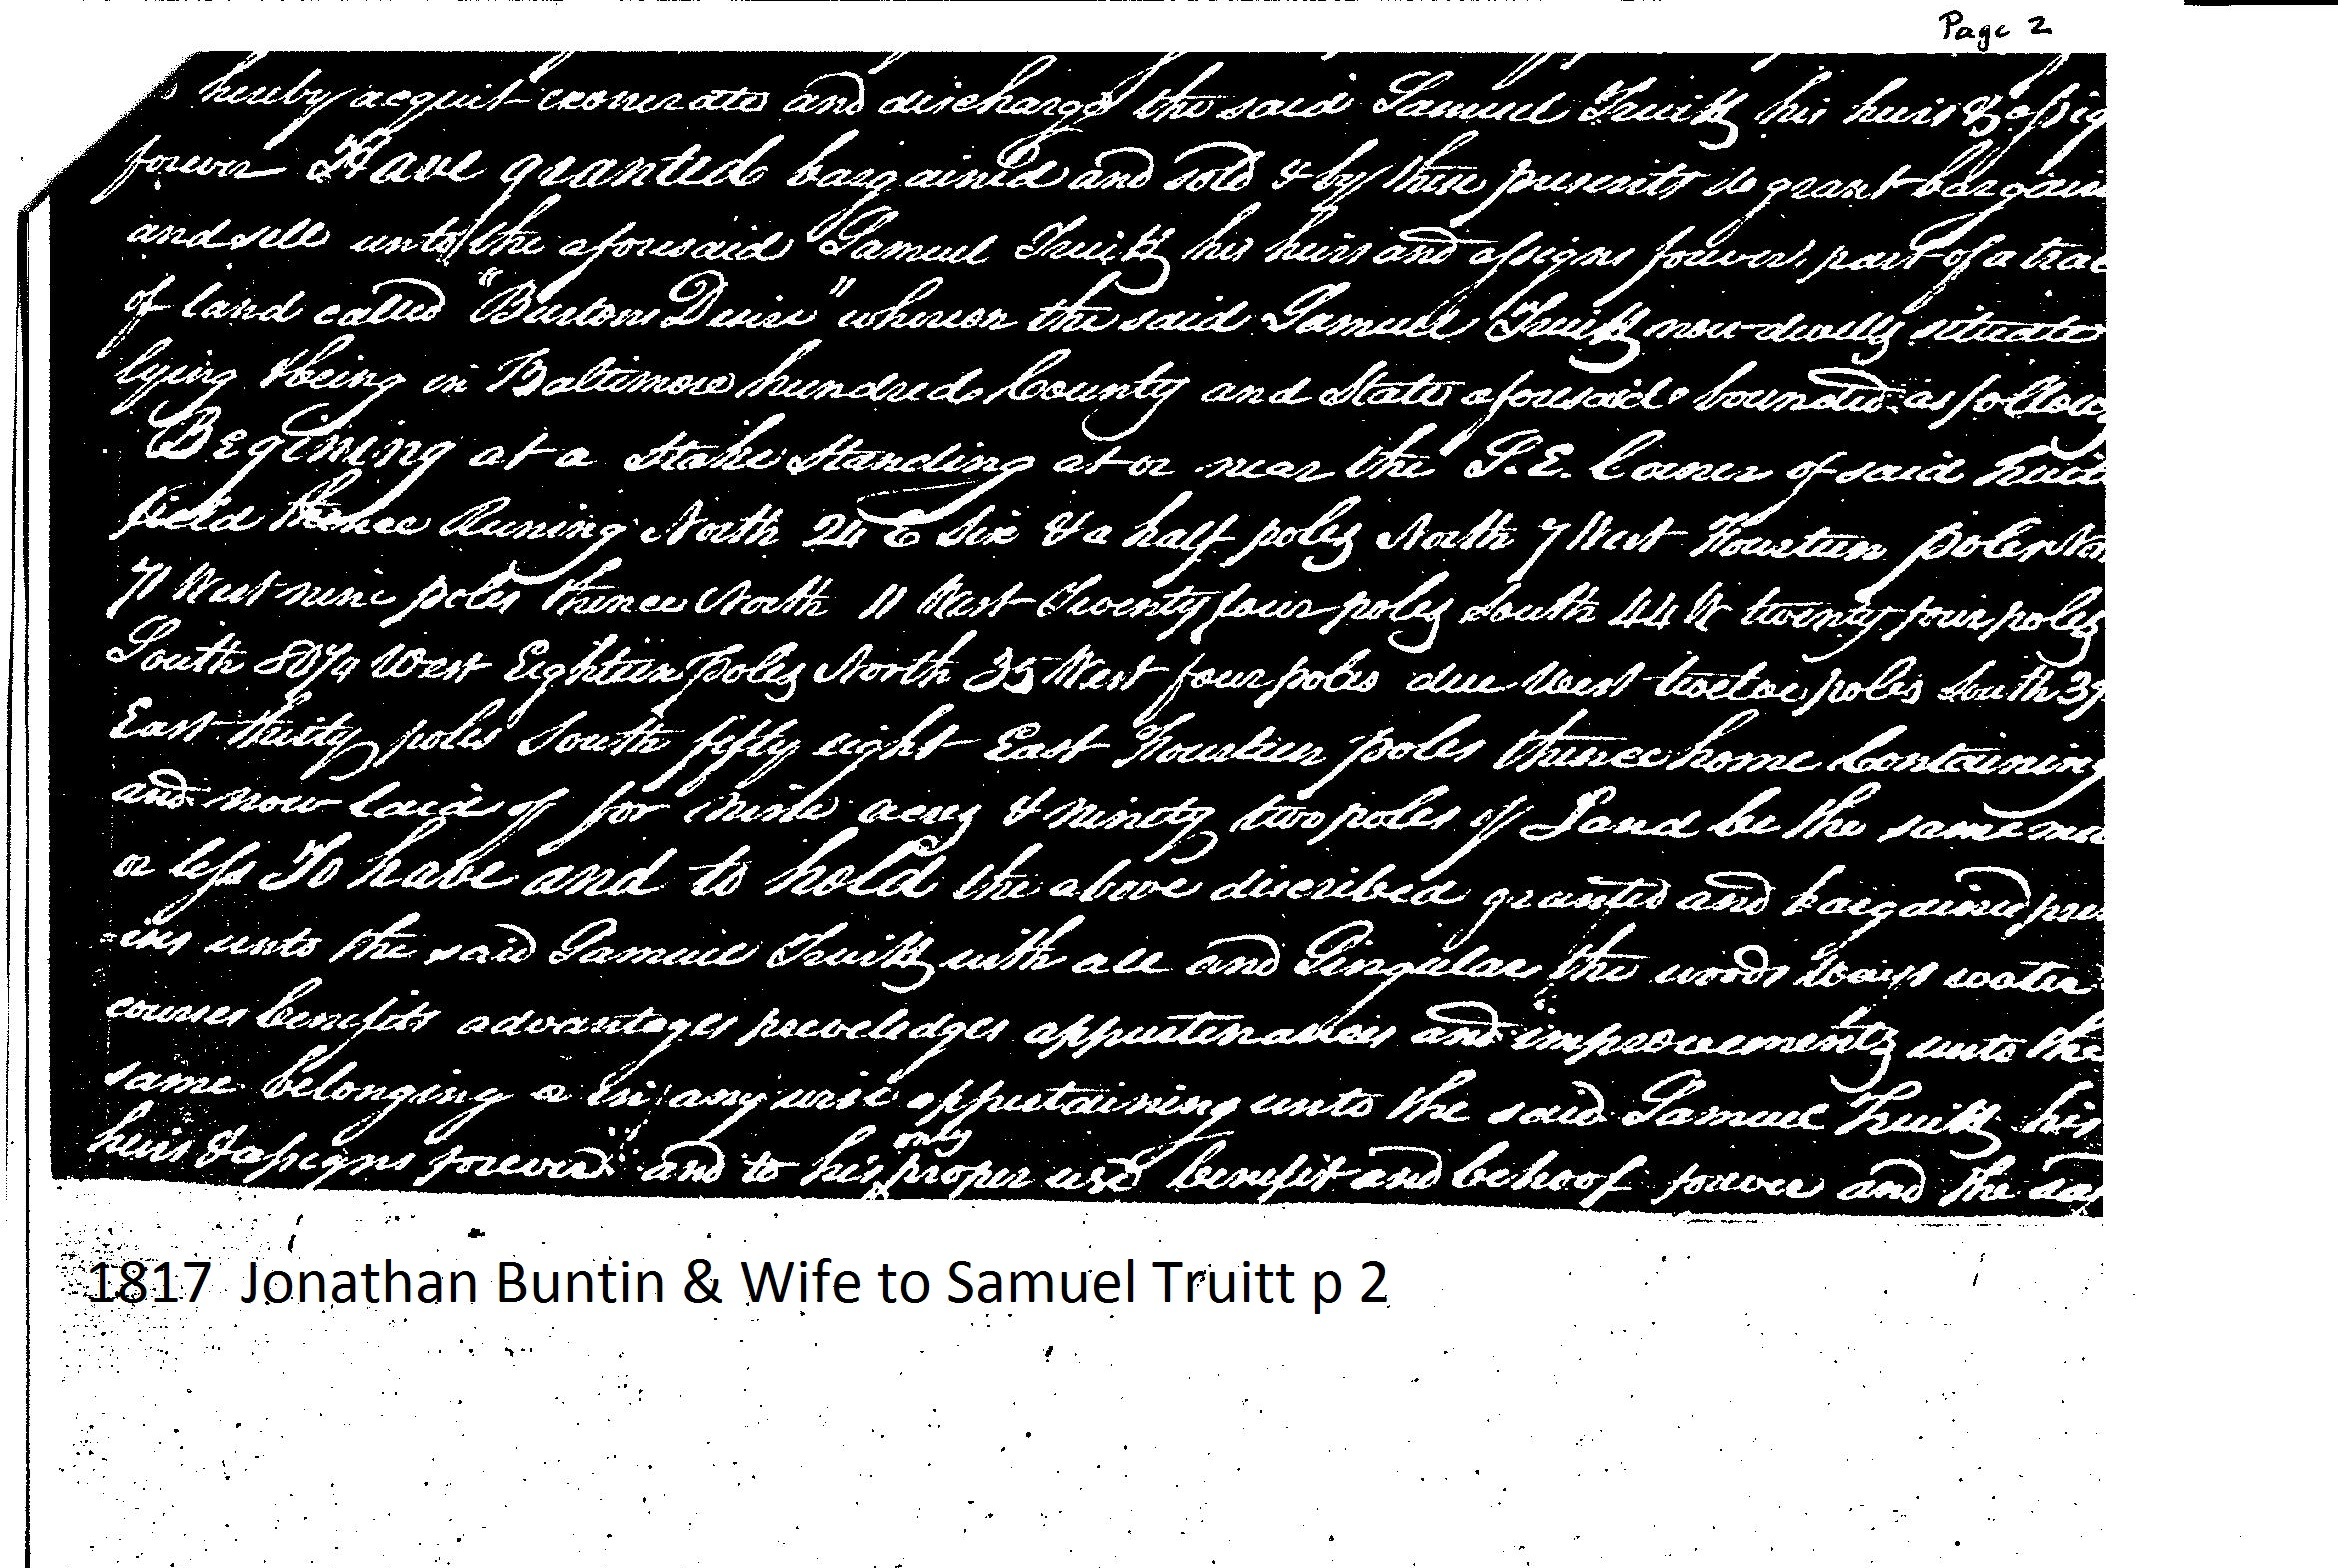 Page 2
hereby acquit exonerate and discharge the said Samuel Truitt his heirs & assig
forever Have granted bargained and sold & by these presents do grant bargain
and sell unto the aforesaid Samuel Truitt his heirs and assigns forever, part of a trac
of land called "Burtons Desire" whereon the said Samuel Truitt now dwells situate
lying & being in Baltimore hundred County and State aforesaid bounded as follows
Begining at a Stake Standing at or near the S.E. Corner of said Truitt
field thence Runing North 24 E Six & a half poles North 7 West Fourteen poles Nor
71 West nine poles thence North 11 West Twenty four poles South 44 W twenty four poles
South West Eighteen poles North 35 West four poles due West twelve poles South 39
East thirty poles South fifty eight East Fourteen poles thence home Containing
and now laid of for nine acres & ninety two poles of Land be the same mo
or less To have and to hold the above discribed granted and bargained pre
ises unto the said Samuel Truitt with all and Singular the woods ways water
courses benefits advantages preveledges appurtenances and improvements unto the
same belonging or in any wise appertaining unto the said Samuel Truitt his
heirs & assigns forever and to his only proper use benefit and behoof forever and the sai
1817 Jonathan Buntin & Wife to Samuel Truitt p 2